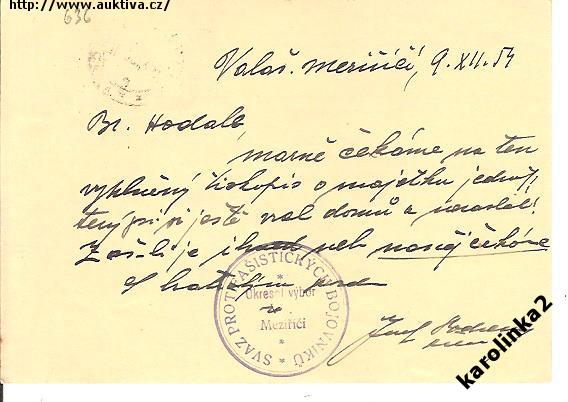 http://www.auktiva.cz/
636
Valaš. Meziříčí, 9.XII.54
Br. Hodale
marně čekáme na ten
vyplněný tiskopis o majetku jednoty
který jsi si ještě vzal domů a neposlal!
Zašli je ihned neb na něj čekáme
S bratrským
SVAZ PROTIFAŠISTICKÝCH BOJOVNÍKŮ
Okresní výbor
Meziříčí
Josef
karolinka2